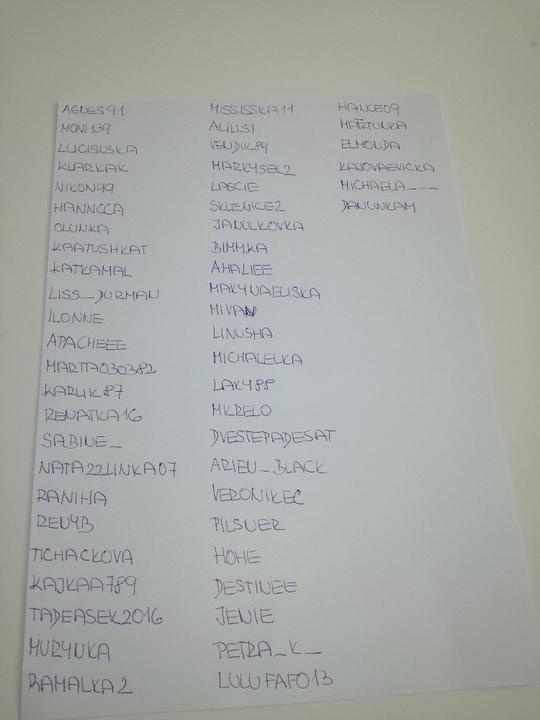 AGNES91
MONI139
LUCISUSKA
KLARKAK
NIKON99
HANNCCA
OLUNKA
KAATUSHKAT
KATKAMAL
LISS_DURMAN
ILONNE
APACHEEE
MARTA030382
KARLIK87
RENATKA16
SABINE_
NATA22LINKA07
RANIHA
RENYB
TICHACKOVA
KAJKAA789
TADEASEK2016
MURYNKA
RAMALKA2
MISSISSKA11
ALILISI
VENDIK84
MARKYSEK2
LASCIE
SKLENICE2
JANULKOVKA
BIMMKA
AMALIEE
MAKYNAELISKA
MIVAN
LINUSHA
MICHALELKA
LAKY88
MKRELO
DVESTEPADESAT
ARIEU_BLACK
VERONIKEC
PILSNER
HOHE
DESTINEE
JENIE
PETRA_K_
LULUFAFO13
HANCE09
MARTUNKA
ELMONDA
KAJOVAEVICKA
MICHAELA___
DANUNKAM